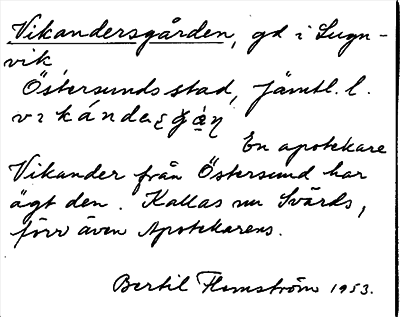 Vikandersgården, gd i Lugn-
vik
Östersunds stad, Jämtl. l.
En apotekare
Vikander från Östersund har
ägt den. Kallas nu Svärds,
förr även Apotekarens.
Bertil Flemström 1953.